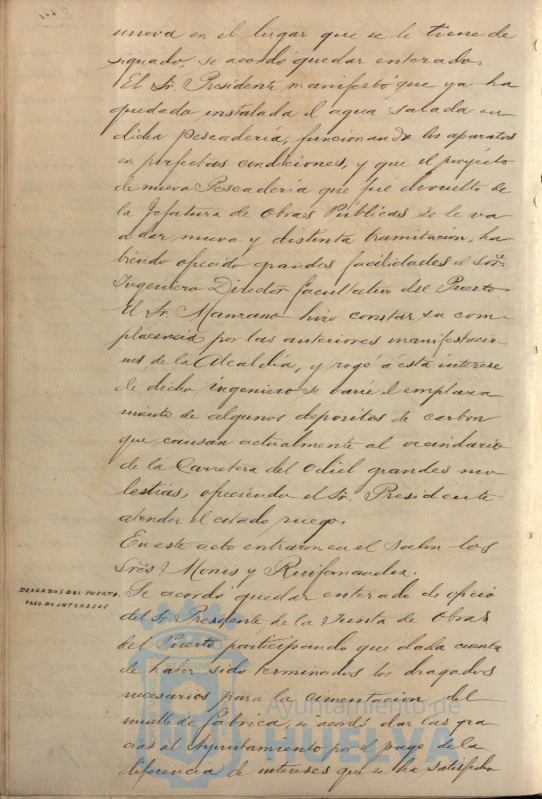 nueva en el lugar que se le tiene de
signado, se acordó quedar enterado.
El Sr. Presidente manifestó que ya ha
quedado instalada el agua salada en
dicha Pescadería, funcionando los aparatos
en perfectas condiciones, y que el proyecto
de nueva Pescadería que fue devuelto de
la Jefatura de Obras Públicas se le va
a dar nueva y distinta tramitación, ha
biendo ofrecido grandes facilidades el Sor.
Ingeniero Director facultativo del Puerto.
El Sr. Manzano hizo constar su com-
placencia por las anteriores manifestacio
nes de la Alcaldía, y rogó á esta interese
de dicho Ingeniero se varíe el emplaza
miento de algunos depositos de carbon
que causan actualmente al vecindario
de la Carretera del Odiel grandes mo
lestias, ofreciendo el Sr. Presidente
atender el citado ruego.
En este acto entraron en el Salon los
Sres. Monís y Ruifernandez.
DRAGADOS DEL PUERTO.
PAGO DE INTERESES
Se acordó quedar enterado de oficio
del Sr. Presidente de la Junta de Obras
del Puerto participando que dada cuenta
de haber sido terminados los dragados
necesarios para la cimentacion del
muelle de fábrica, se acordó dar las gra
cias al Ayuntamiento por el pago de la
diferencia de intereses que se ha satisfecho
Ayuntamiento de
HUELVA